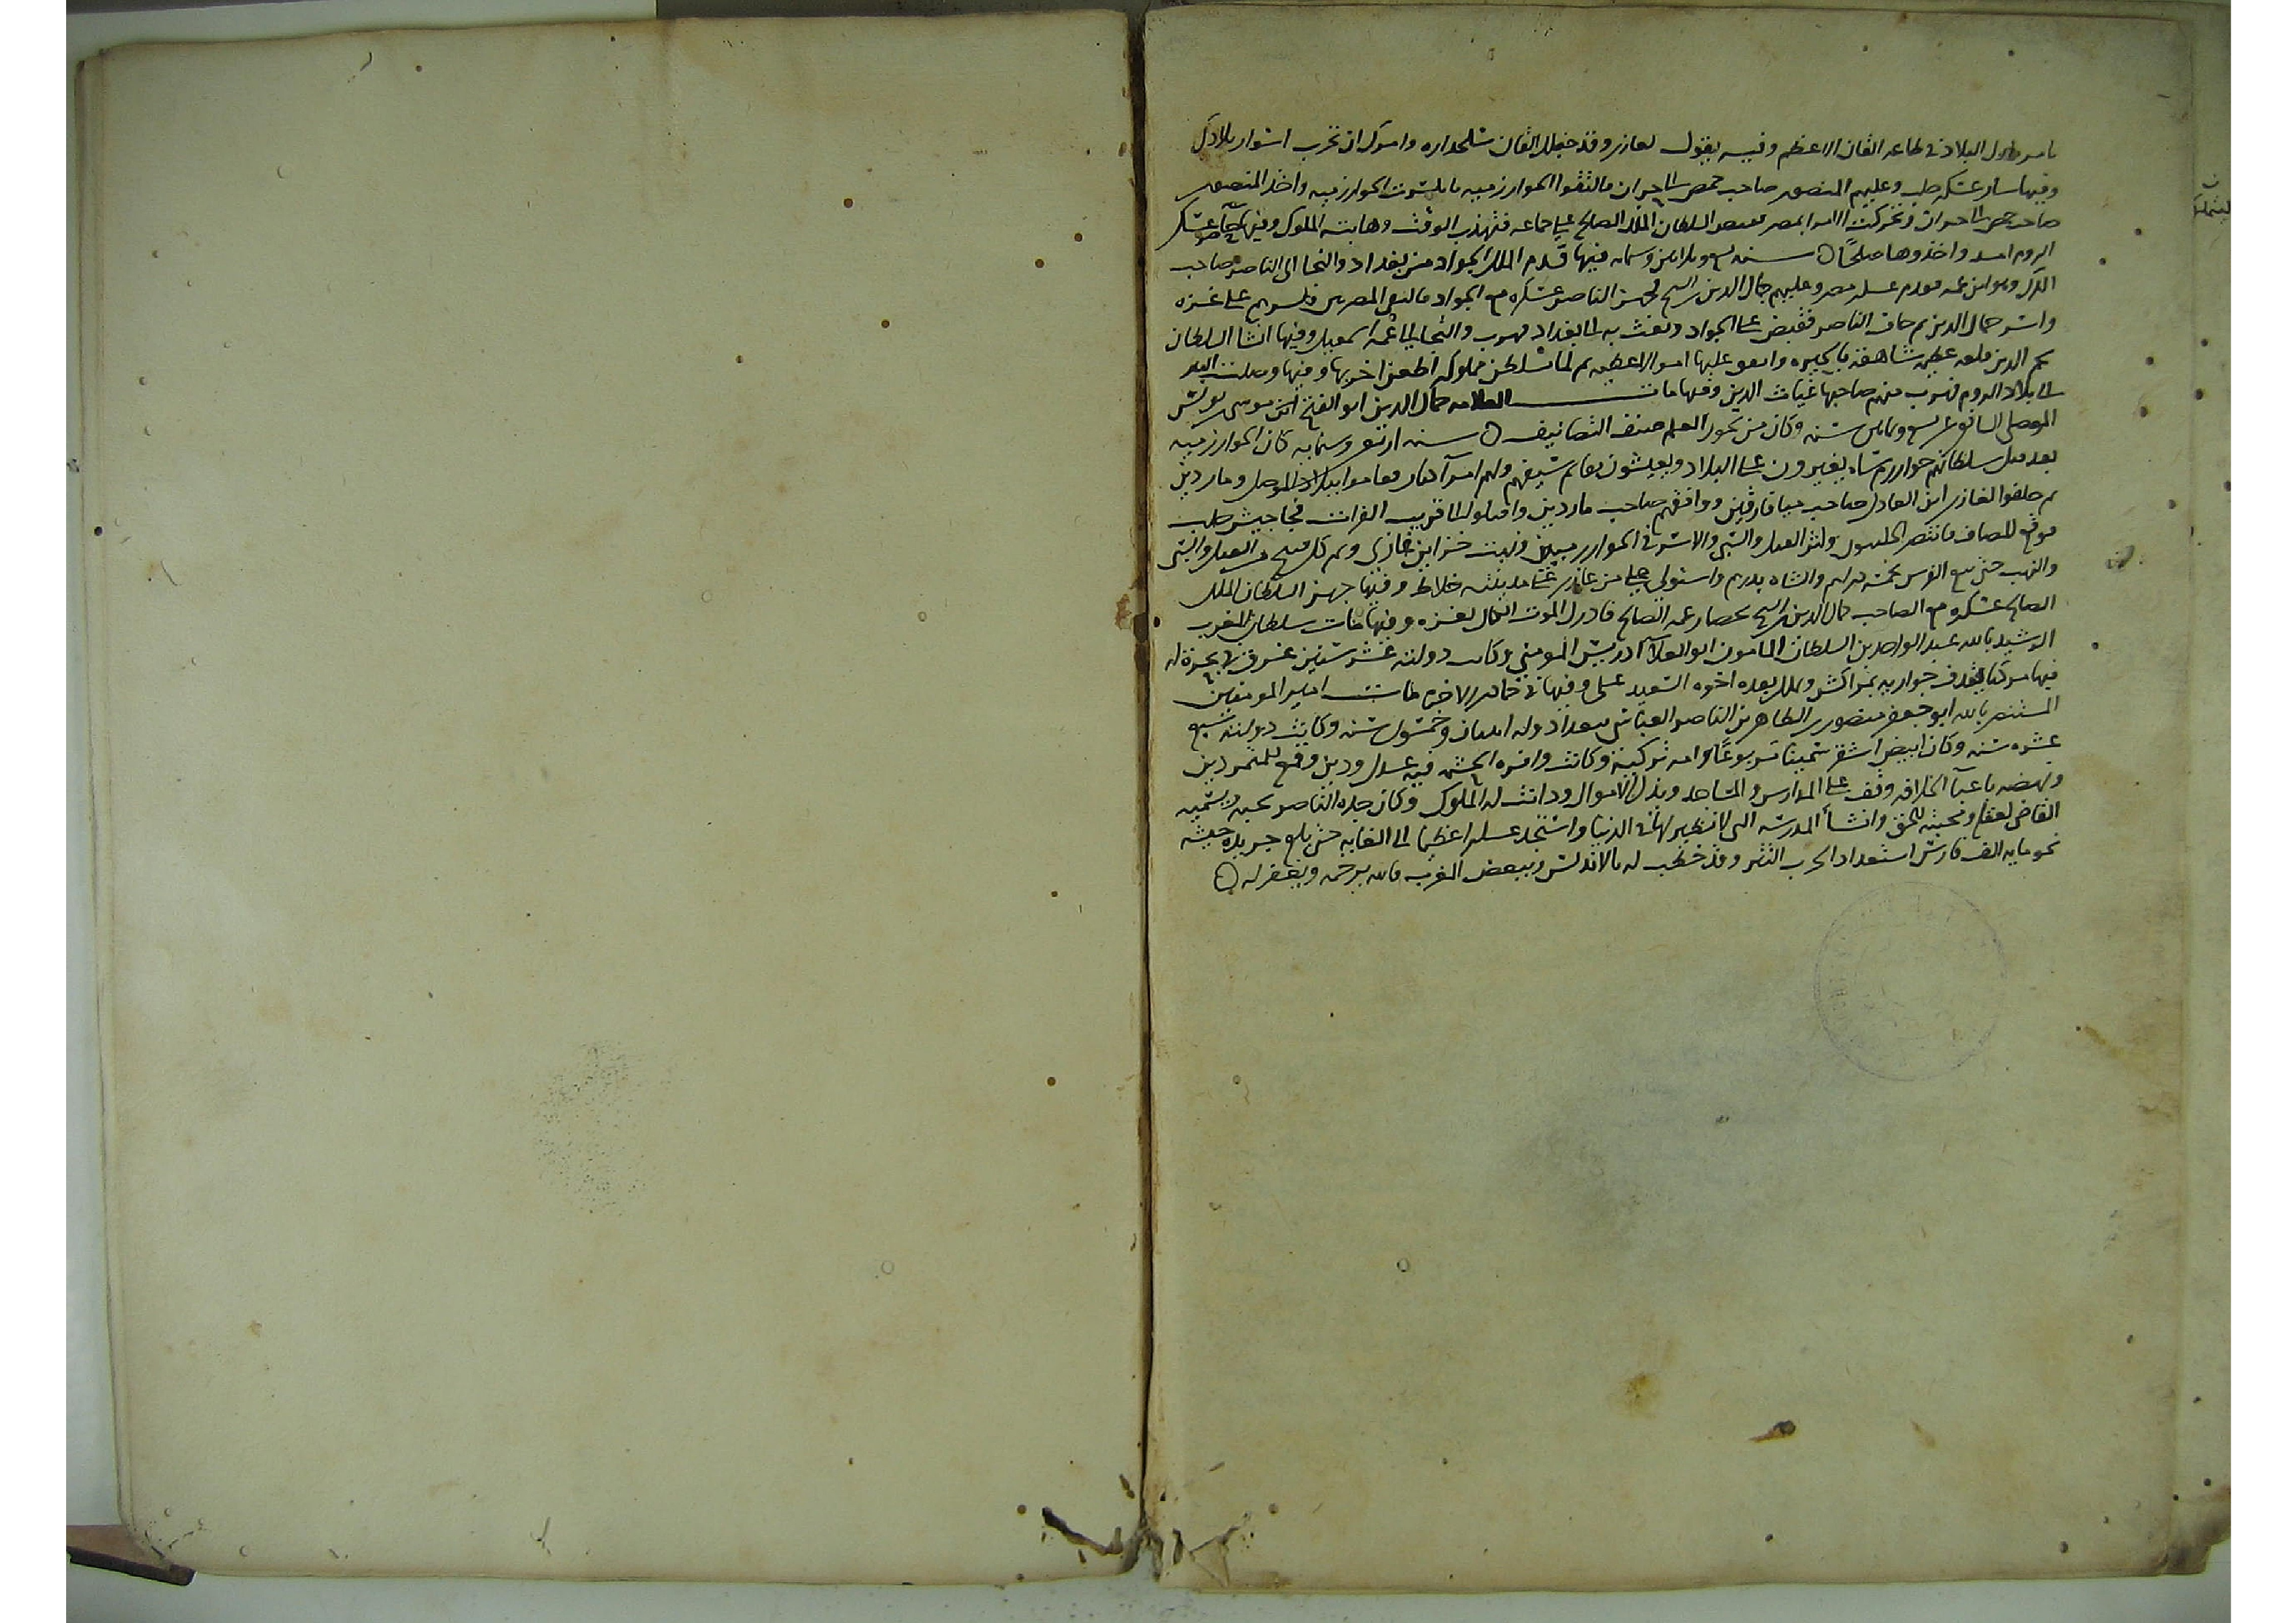 يامر ملوك البلاد في طاعه القان الاعظم وفيه يقول لغازي وقد جعلك القان سلحداره وامرك ان تخرب اسوار بلادك
وفيها سار عسكر حلب وعليهم المنصور صاحب حمص الى حران فالتقوا الخوارزميه فانكسرت الخوارزميه واخذ المنصور
صاحب حمص حران وتحركت الامرا بمصر السلطان الملك الصالح على جماعه فتهذب الوقت وهابته الملوك وفيها حاصر عسكر
الروم امد واخذوها صلحًا ۝ سنه تسع وثلاثين وستمايه فيها قدم الملك الجواد من بغداد والتجا الى الناصر صاحب
الكرك وهو ابن عمه فقدم عسكر مصر وعليهم كمال الدين بن الشيخ فجهز الناصر عسكره مع الجواد فالتقى المصريين فكسرهم على غزه
واسر كمال الدين ثم خاف الناصر فقبض على الجواد وبعث به الى بغداد فهرب والتجا الى عمه اسمعيل وفيها انشا السلطان
نجم الدين قلعه عظيمه شاهقه بالجيزه وانفق عليها اموالا عظيمه ثم لما تسلطن مملوكه قطز اخربها وفيها وصلت التتر
الى بلاد الروم فهرب منهم صاحبها غياث الدين وفيها مات العلامه كمال الدين ابو الفتح ابن موسى يونس
الموصلي الشافعي عن تسع وثمانين سنه وكان من بحور العلم صنف التصانيف ۝ سنه اربعين وستمايه كان الخوارزميه
بعد قتل سلطانهم خوارزم شاه يغيرون على البلاد ويعيشون بقايم سيفهم ولهم امرآ كبار فعاثوا ببلاد الموصل وماردين
ثم حلفوا لغازي ابن العادل صاحب ميافارقين ووافقهم صاحب ماردين واقبلوا الى قريب الفرات فجا جيش حلب
فوقع المصاف فانتصر الحلبيون وكثر القتل والسبي والاسر في الخوارزميين ونهبت خزاين غازي وتم كل قبيح من القتل والسبي
والنهب حتى بيع الفرس بخمسه دراهم والشاه بدرهم واستولى على مدينه خلاط وفيها جهز السلطان الملك
الصالح عسكره مع الصاحب كمال الدين بن الشيخ لحصار عمه الصالح فادرك الموت الكمال بغزه وفيها مات سلطان المغرب
الرشيد بالله عبد الواحد بن السلطان المامون ابو العلآ ادريس المومني وكانت دولته عشر سنين غرق في بحره له
فيها مركبا يقذف جواريه بمراكش وملك بعده اخوه السعيد علي وفيها في جمادى الاخره مات امير المومنين
المستنصر بالله ابو جعفر منصور بن الظاهر بن الناصر العباسي ببغداد وله اثنان وخمسون سنه وكانت دولته سبع
عشره سنه وكان ابيض اشقر سمينا مربوعًا وامه تركيه وكانت وافره الحشمه فيه عدل ودين وقمع للمتمردين
ونهضه باعبآ الخلافه وقف على المدارس والمساجد وبذل الاموال ودانت له الملوك وكان جده الناصر يحبه ويسميه
القاضي لعقله ومحبته للحق وانشأ المدرسه التي لا نظير لها في الدنيا واستخدم عسكرا عظيما الى الغايه حتى بلغ جريده جيشه
نحو مايه الف فارس استعدادا لحرب التتر وقد خطب له بالاندلس وببعض المغرب فالله يرحمه ويغفر له ۝